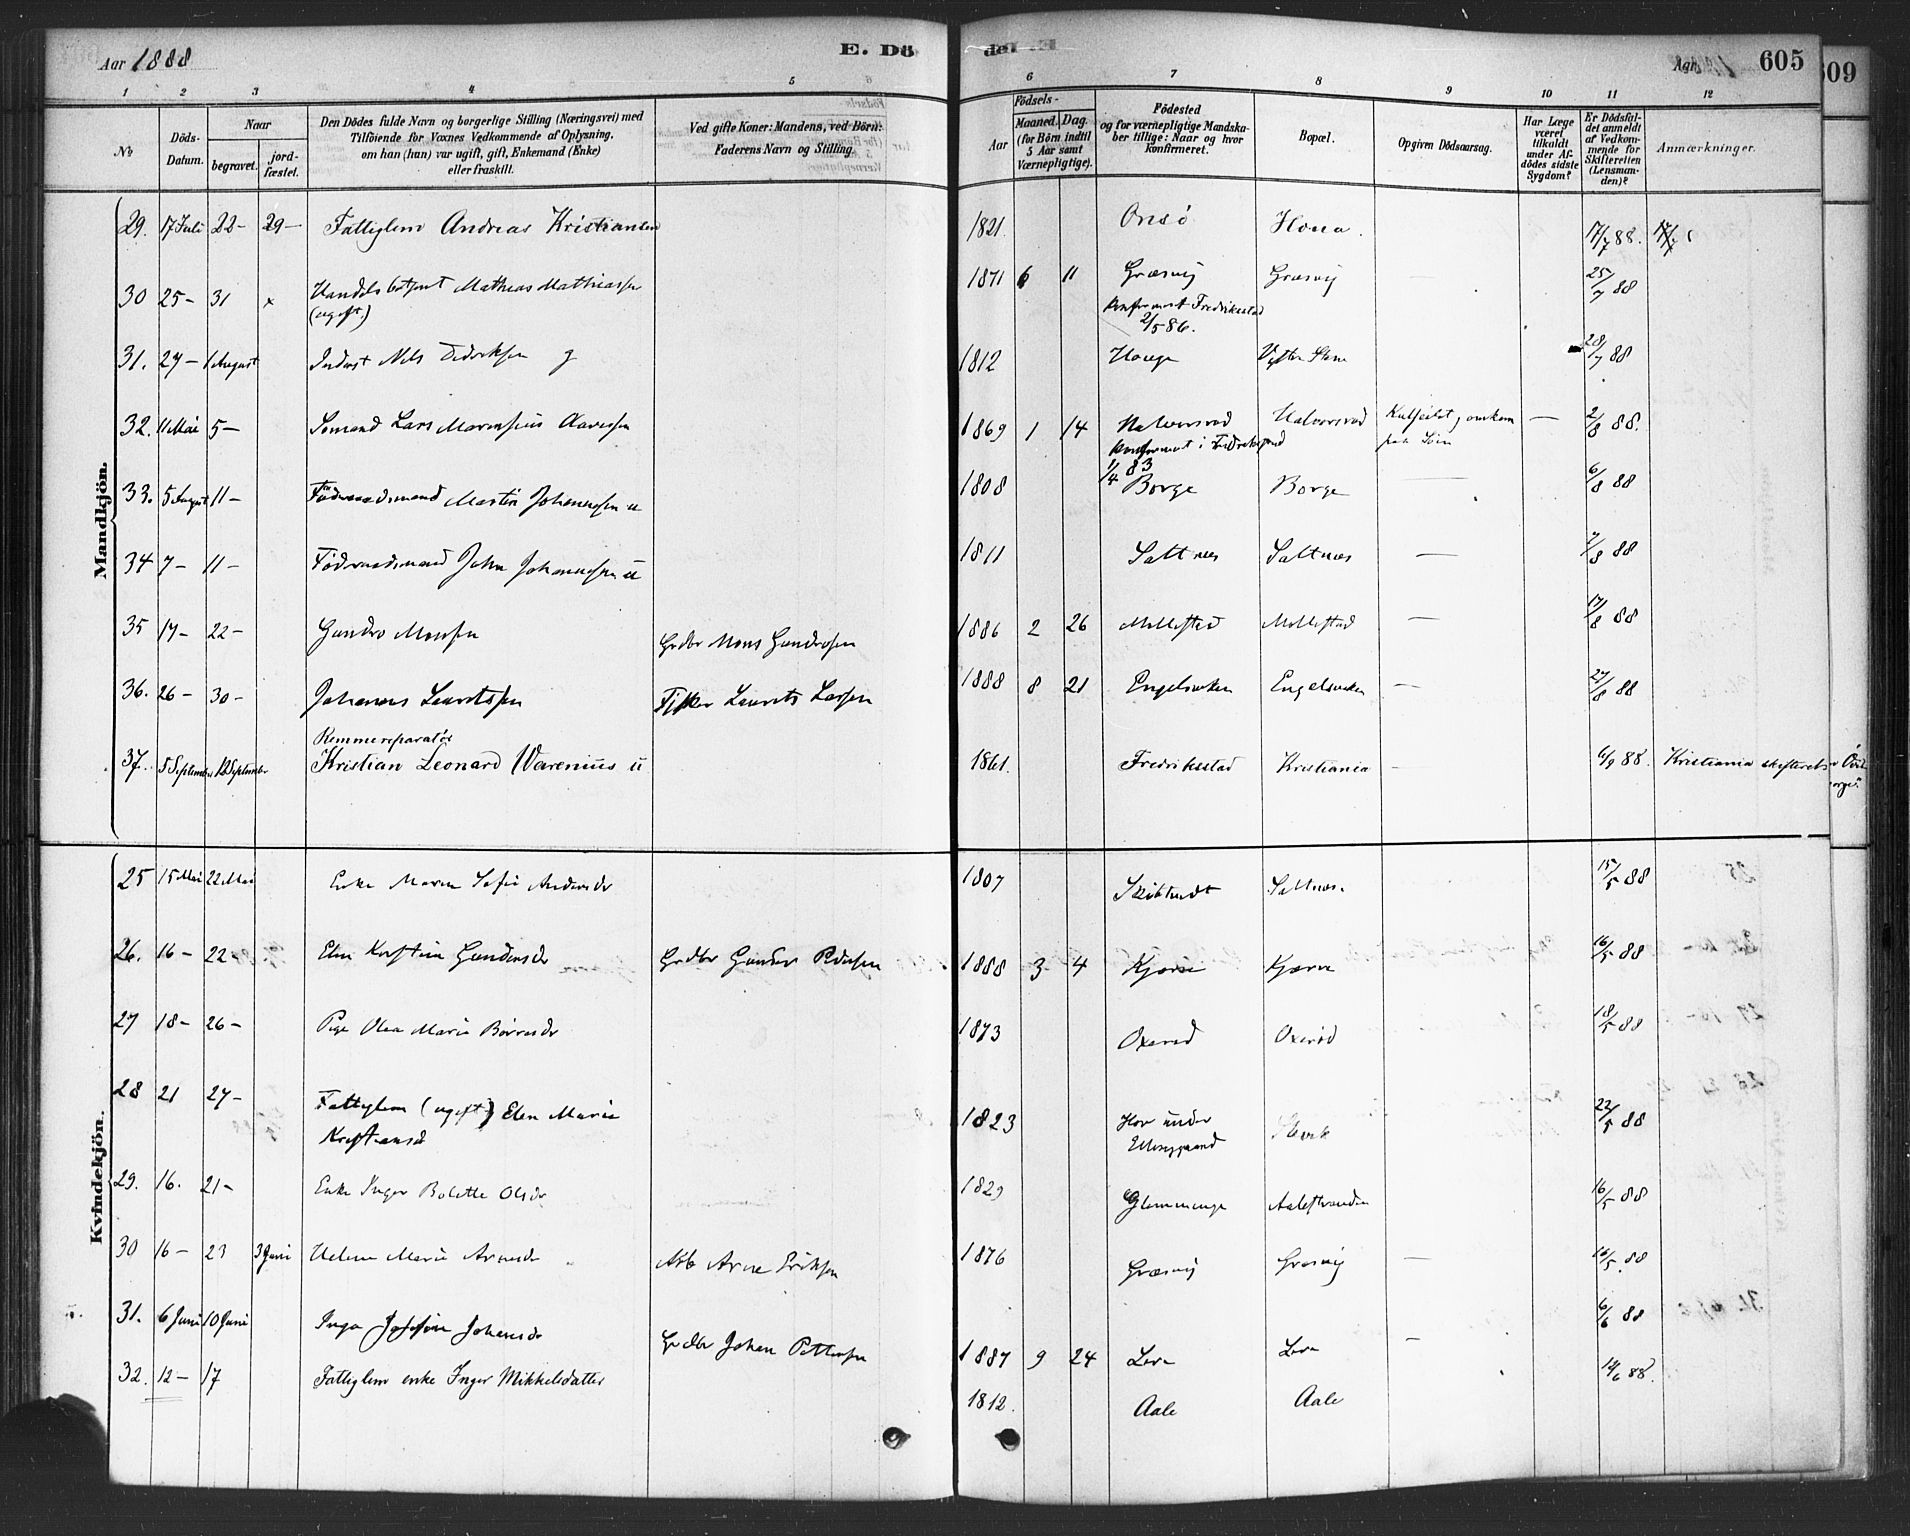 Aar 1888
E. Dö
de
605
609
1 2 3 4 5 6 7 8 9 10 11 12
№
Döds-Datum.
Naar
begravet.
jord-fæstet.
Den Dödes fulde Navn og borgerlige Stilling (Næringsvei) med
Tilföiende for Voxnes Vedkommende af Oplysning,
om han (hun) var ugift, gift, Enkemand (Enke)
eller fraskilt.
Ved gifte Koner: Mandens, ved Börn:
Faderens Navn og Stilling.
Födsels-
Aar
Maaned. Dag.
(for Börn indtil
5 Aar samt
Værnepligtige).
Födested
og for værnepligtige Mandska-
ber tillige: Naar og hvor
konfirmeret.
Bopæl.
Opgiven Dödsaarsag.
Har Læge
været
tilkaldt
under Af-
dödes sidste
Sygdom?
Er Dödsfal-
det anmeldt
af Vedkom-
mende for
Skifteretten
(Lensman-
den)?
Anmærkninger.
Mandkjön.
29. 17 Juli 22 – 29 – Fattiglem Andreas Kristiansen 1821. Onsö 17/7 88.
30 25 – 31 x Mathias Mathiassen 1871 6 11 Græsvig Græsvig 25/7 88
(ugift.) Fredriksstad
2/5 86.
31. 27 – 1 August Inderst Nils Didriksen g 1812 Hauge 28/7 88
32. 11 Mai 5 – Sömand Lars 1869 1 14 Halvorsrød Halvorsrød Kulseilet, omkom — 2/8 88.
1/4 83
33. 5 August 11 – Föderaadsmand Martin Johannessen u 1808 Borge Borge — 6/8 88
34 7 – 11 – Föderaadsmand John Johannessen u 1811 Saltnæs Saltnæs — 7/8 88
35 17 – 22 – Gundro Monsen Grdbr Mons Gundrosen 1886 2 26 Mellestad Mellestad — 17/8 88
36. 26 – 30 – Johannes Lauritssen Fisker Laurits Larsen 1888 8 21 Engelsviken Engelsviken — 27/8 88
Remmereparatör
37. 5 September 12 September Kristian Leonard Warenius u 1861. Fredriksstad Kristiania — 6/9 88. Kristiania skifteret
Kvindekjön.
25 15 Mai 22 Mai Enke Maren Sofie Andersdr 1807 Skibstvedt Saltnæs. 15/5 88
26. 16 – 22 – Elen Kristine Gundersdr Grdbr Gunder Pedersen 1888 3 4 Kjærre Kjærre 16/5 88
27 18 – 26 – Pige Olea Marie Börresdr 1873 Oxeröd Oxeröd 18/5 88
28 21 27 – Fattiglem (ugift) Elen Marie
Kristiansd 1823 Hov under
Elingaard 22/5 88
29. 16. 21 – Enke Inger Bolette Olsdr 1829 Glemminge Aalestranden 16/5 88
30 16 – 23 3 Juni Helene Marie Arnesdr Arb Arne Eriksen 1876 Græsvig Græsvig — 16/5 88
31. 6 Juni 10 Juni Inga Josefine Johansdr Grdbr Johan Pettersen 1887 9 24 Lere Lere — 6/6 88
32. 12 – 17 Fattiglem enke Inger Mikkelsdatter 1812. Aale Aale 14/6 88.